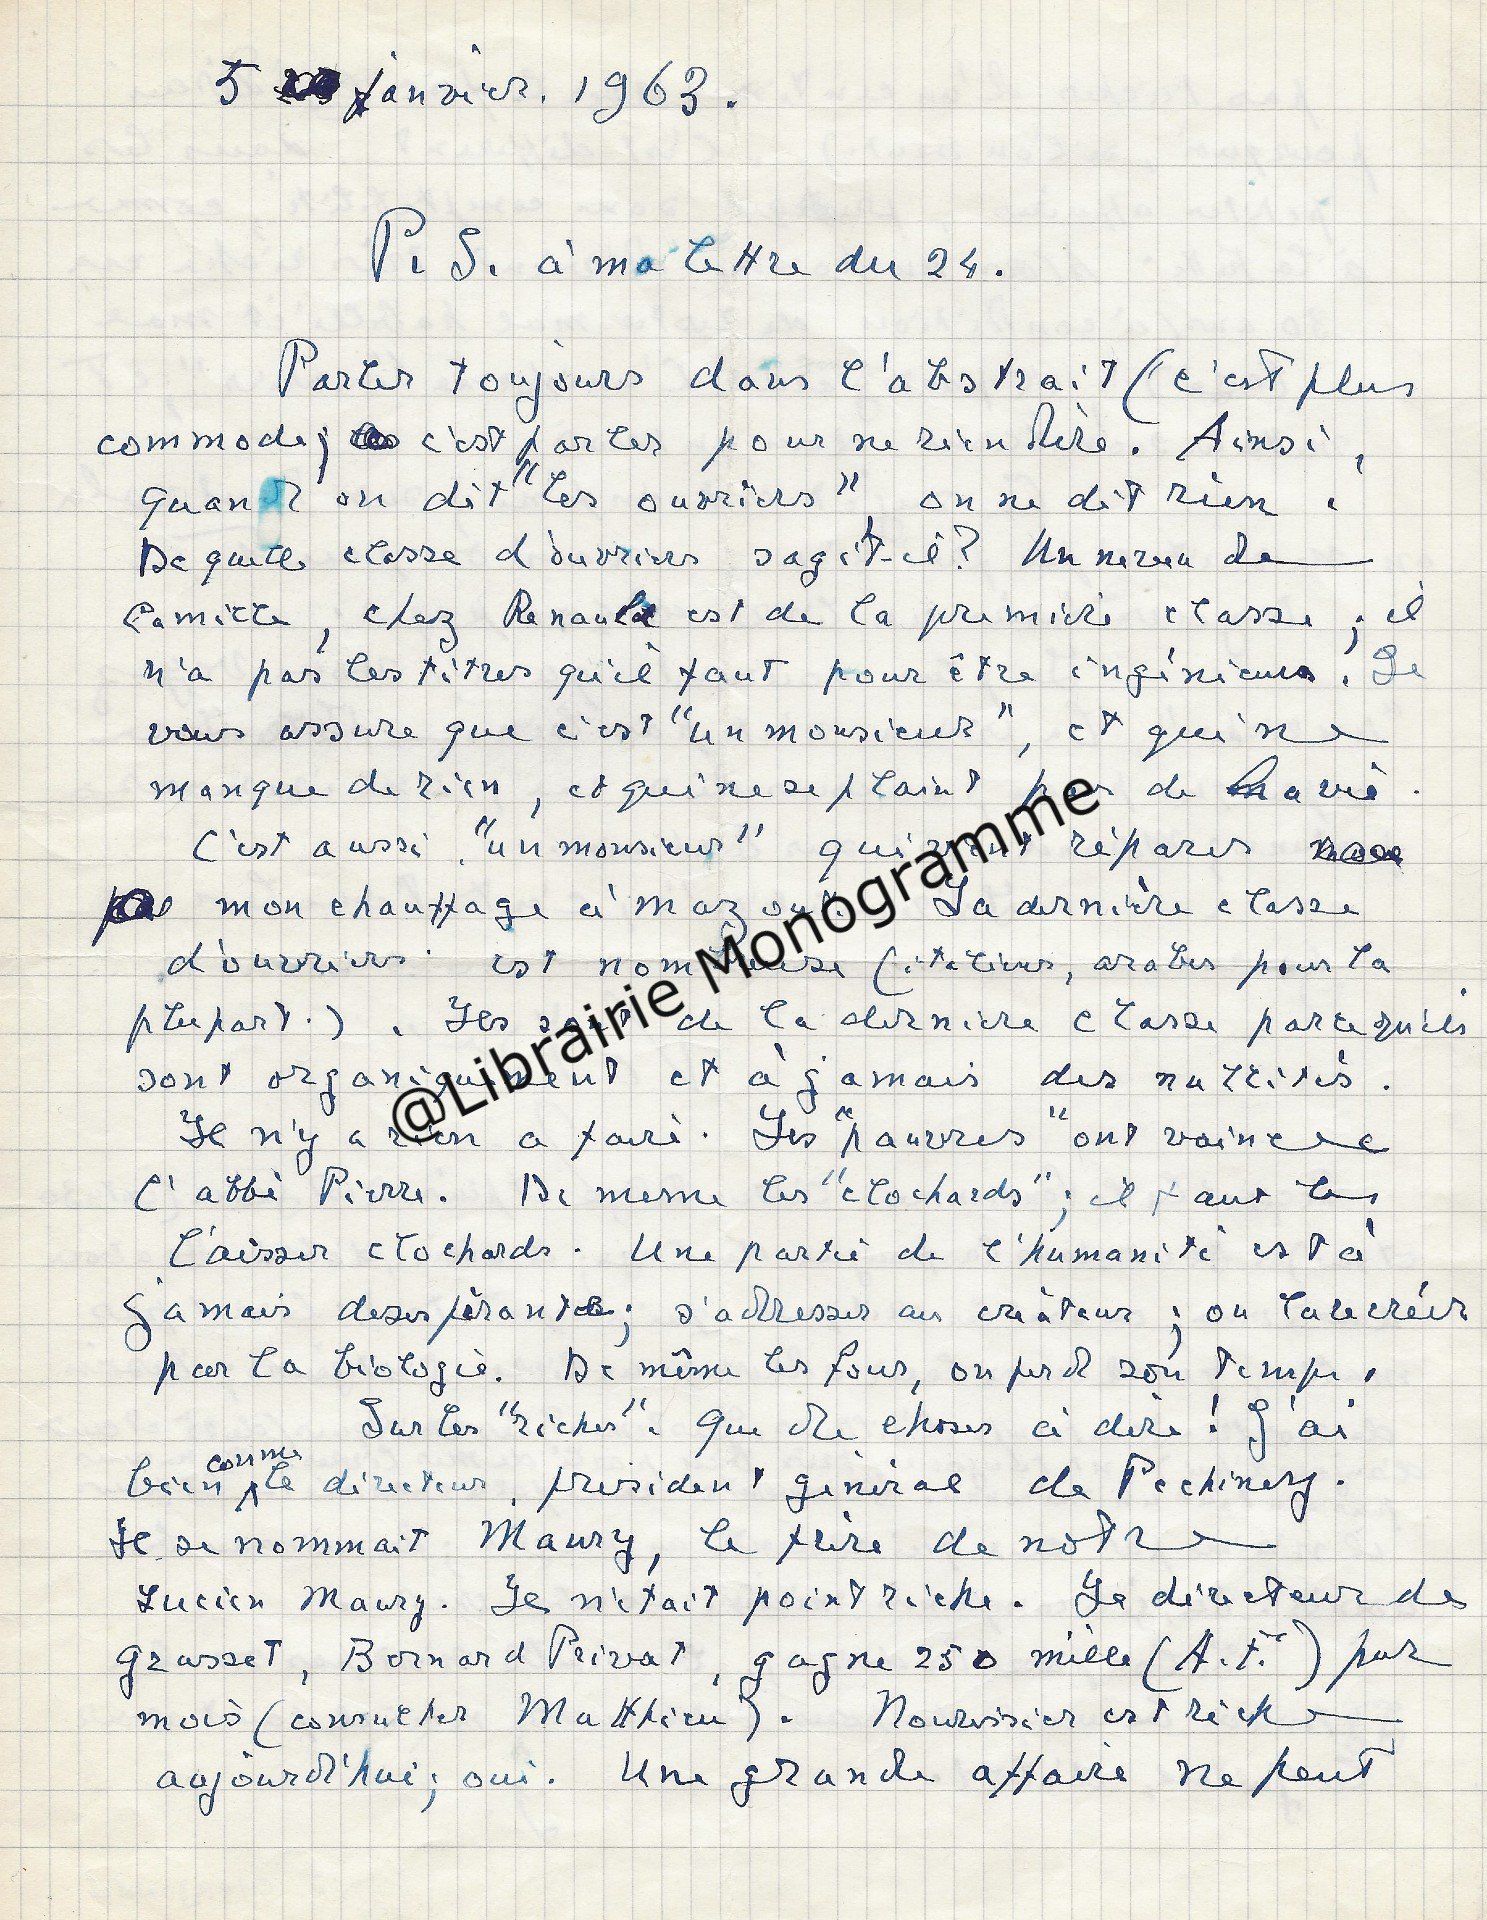 5 janvier. 1963.
P. S. à ma lettre du 24.
Parler toujours dans l'abstrait (c'est plus
commode; c'est parler pour ne rien dire. Ainsi,
quand on dit "les ouvriers", on ne dit rien.
De quelle classe d'ouvriers sagit-il? Un neveu de
Camille, chez Renault est de la première classe; il
n'a pas les titres qu'il faut pour être ingénieur. Je
vous assure que c'est "un monsieur", et qui ne
manque de rien, et qui ne se plaint pas de la vie.
C'est aussi "un monsieur" qui vient réparer
mon chauffage à mazout. La dernière classe
d'ouvriers est nombreuse (italiens, arabes pour la
plupart.). Ils sont de la dernière classe parcequ'ils
sont organiquement et à jamais des nullités.
Il n'y a rien a faire. Les "pauvres" ont vaincu
l'abbé Pierre. De meme les "clochards"; il faut les
laisser clochards. Une partie de l'humanité est à
jamais desespérante; s'adresser au créateur; ou la recréer
par la biologie. De même les fous, on perd son temps.
Sur les "riches". Que de choses à dire! J'ai
bien connu le directeur, président général de Pechinery.
Il se nommait Maury, le frère de notre
Lucien Maury. Il n'était point riche. Le directeur de
Grasset, Bernard Privat, gagne 250 mille (A.F.) par
mois (consulter Matthieu). Nourissier est riche
aujourd'hui; oui. Une grande affaire ne peut
@Librairie Monogramme